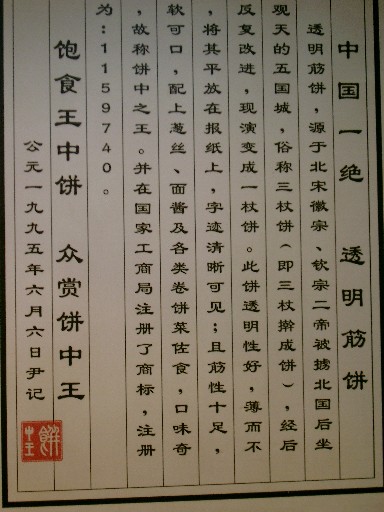 中国一绝 透明筋饼
透明筋饼，源于北宋徽宗、钦宗二帝被掳北国后坐
观天的五国城，俗称三杖饼（即三杖擀成饼），经后
反复改进，现演变成一杖饼。此饼透明性好，薄而不
，将其平放在报纸上，字迹清晰可见；且筋性十足，
软可口，配上葱丝、面酱及各类卷饼菜佐食，口味奇
，故称饼中之王。并在国家工商局注册了商标，注册
为：1159740。
饱食王中饼 众赏饼中王
公元一九九五年六月六日尹记
饼中王